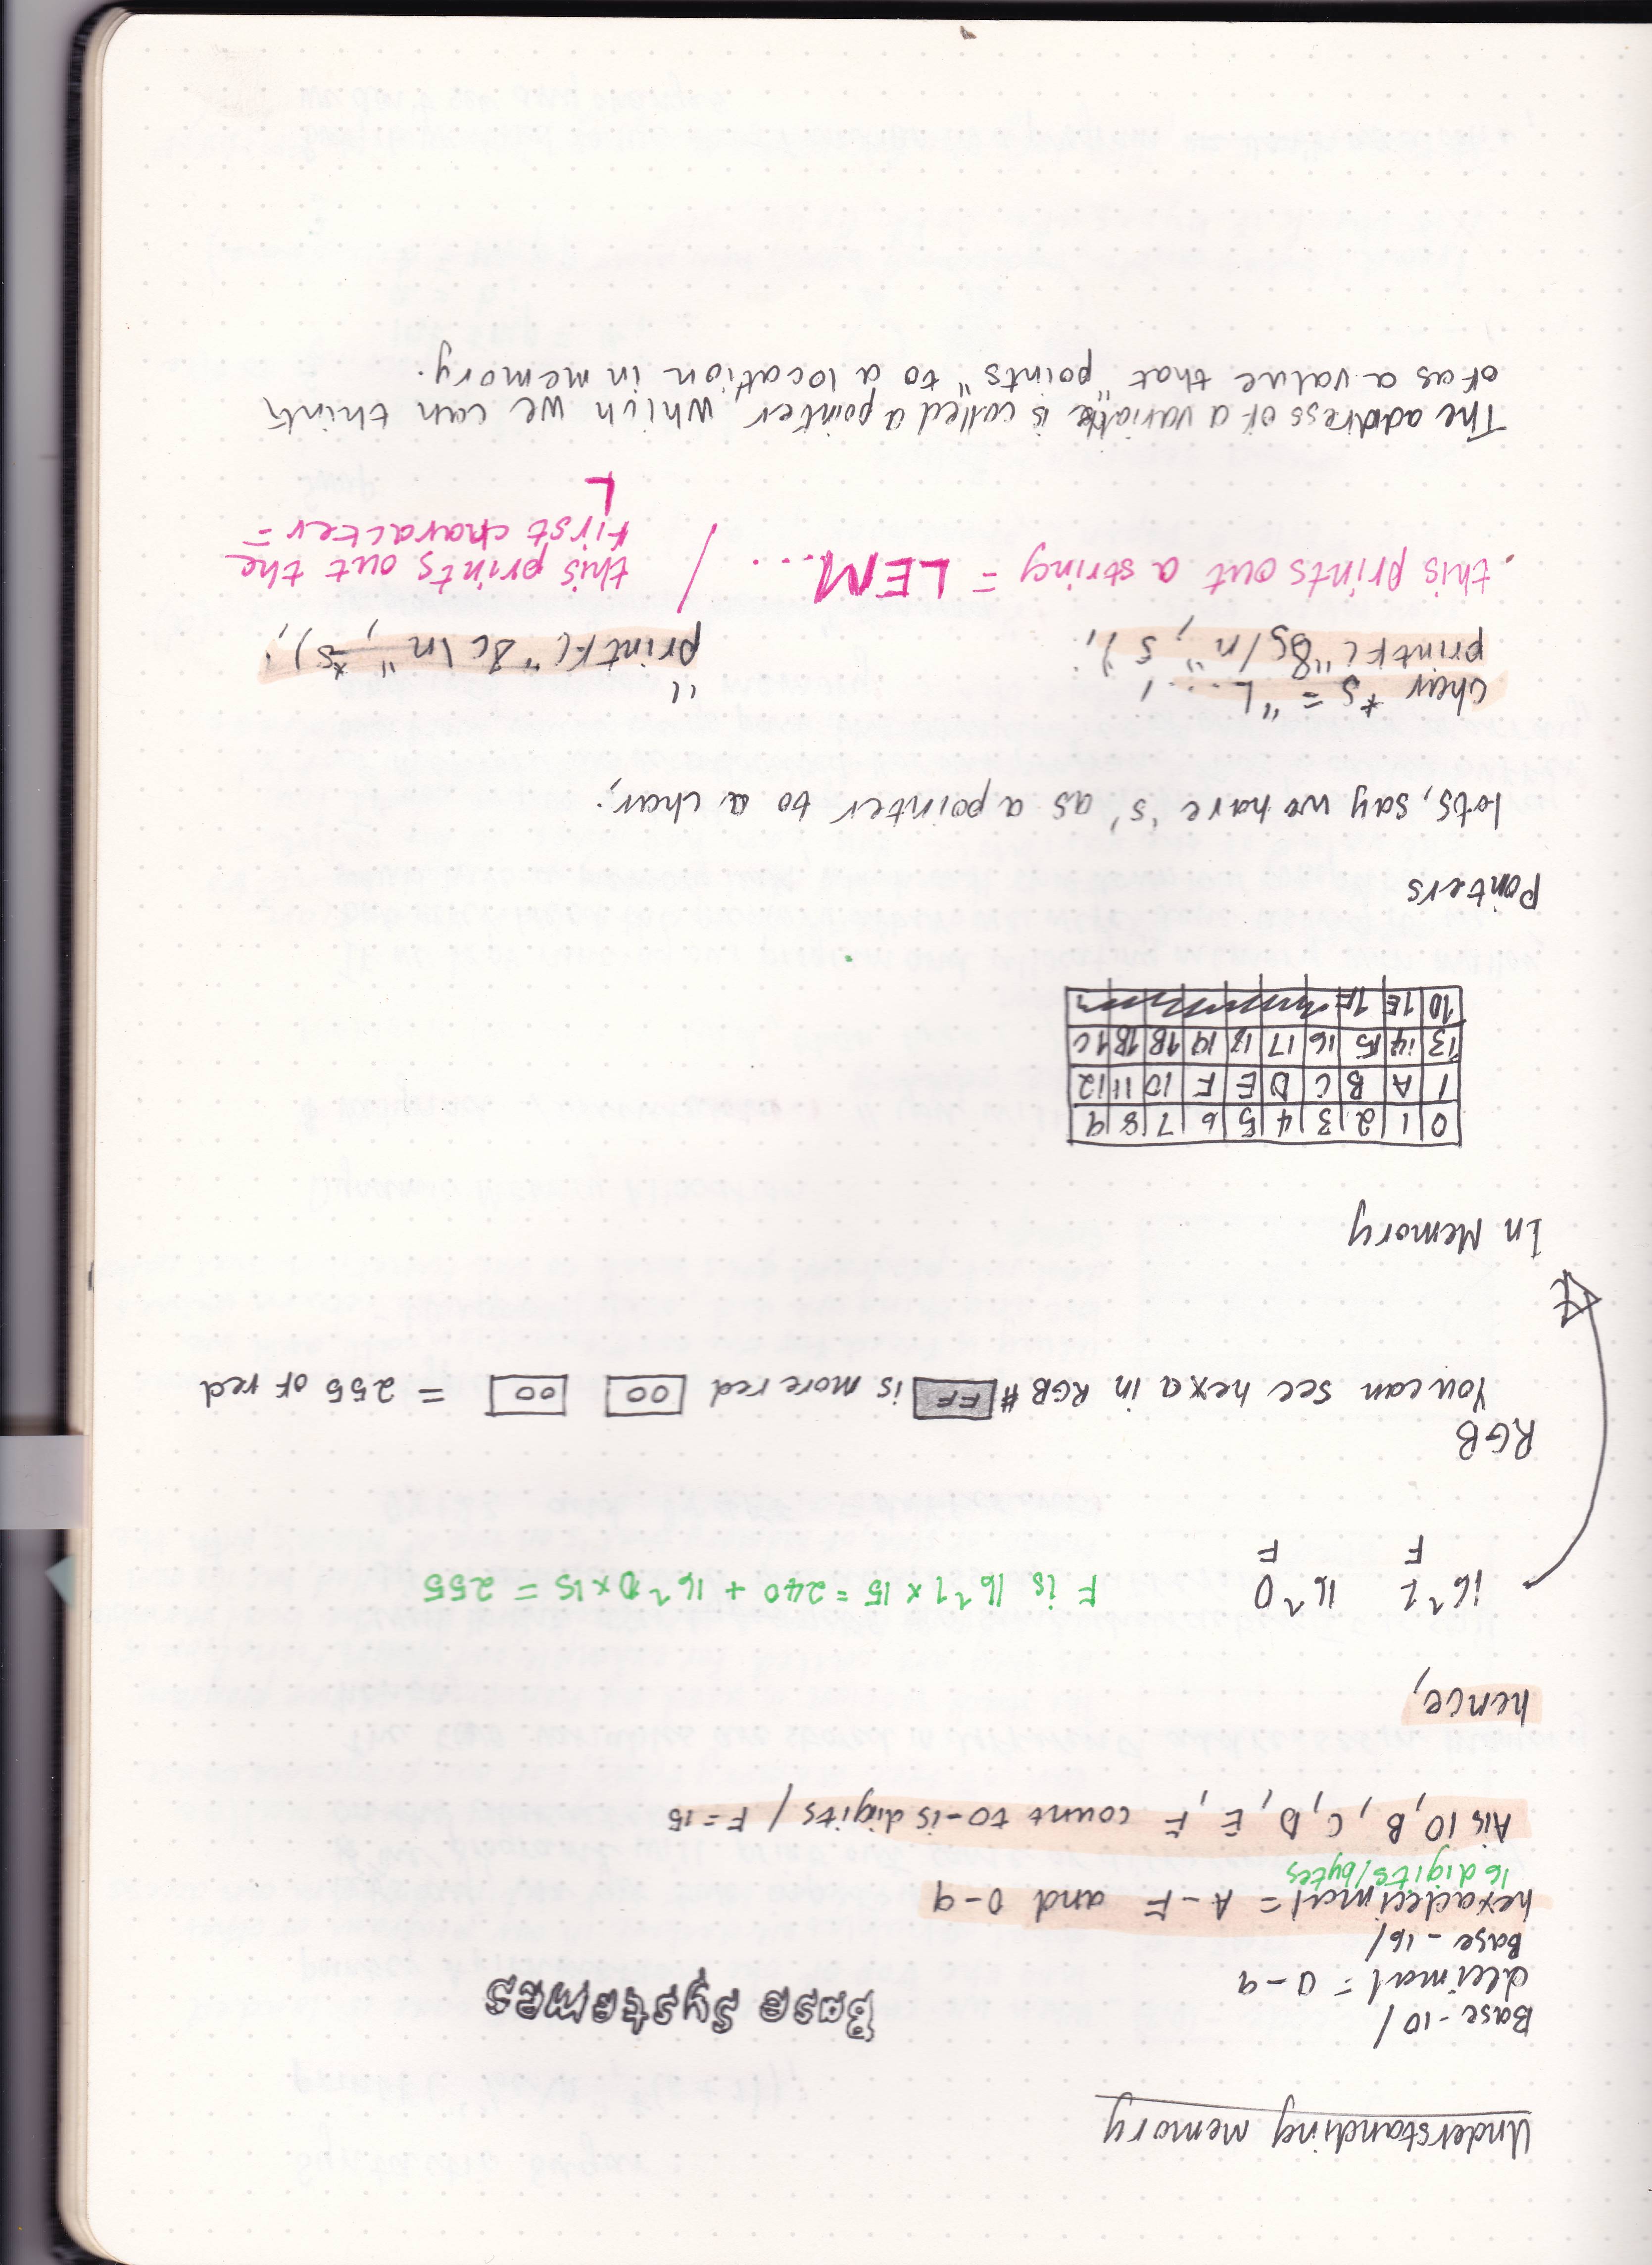 Understanding memory
Base Systemes
Base - 10 /
decimal = 0 - 9
Base - 16 /
hexadecimal = A - F and 0 - 9
16 digits/bytes
A is 10, B, C, D, E, F count to - is digits / F = 15
hence,
16^1 16^0 F is 16^1 x 15 = 240 + 16^0 x 15 = 255
F F
RGB
You can see hexa in RGB # FF is more red 00 00 = 255 of red
In Memory
0 1 2 3 4 5 6 7 8 9
1 A B C D E F 10 11 12
13 14 15 16 17 18 19 1B 1B 1C
1D 1E 1F
Pointers
lets, say we have 's' as a pointer to a char;
char *s = "L... , "
printf("%s/n", s); printf("%c \n", *s);
this prints out a string = LEM... / this prints out the
first character =
L
The address of a variable is called a pointer, which we can think
of as a value that "points" to a location in memory.